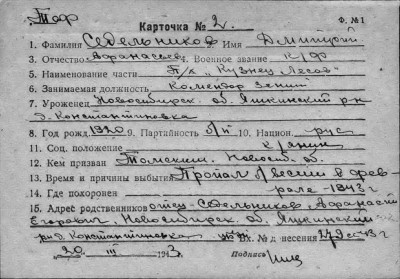 Тоф
Ф. №1
Карточка № 2.
1. Фамилия Седельников Имя Дмитрий
3. Отчество Афанасьев 4. Военное звание к/ф
5. Наименование части П/х "Кузнец Лесов"
6. Занимаемая должность Комендор зенит
7. Уроженец Новосибирск. об. Яшкинский р-н
д. Константиновка
8. Год рожд. 1920 9. Партийность б/п 10. Национ. рус
11. Соц. положение к/янин
12. Кем призван Томским. Новосиб. об.
13. Время и причины выбытия Пропал б/вести в фев-
рале-1943 г
14. Где похоронен
15. Адрес родственников отец-Седельников Афанасий
Егорович, Новосибирск. об. Яшкинский
р-н д. Константиновка Вх. № донесения
20 III 1943 Подпись